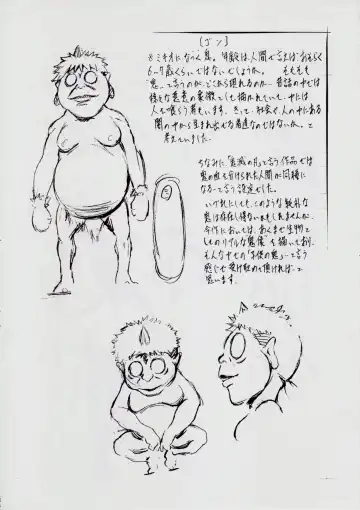 [ゴン]
※ミキオになつく鬼。年齢は人間で言えばおそらく
6〜7歳くらいではないでしょうか。 そもそも
"鬼"って言うのがどこから現れるのか… 昔話の中では
様々な悪意の象徴としても描かれていて、中には
人を喰らう者もいます。さて…社会や人の中にある
闇の中から生まれ出せる者達なのではないか、と
考えていました。
ちなみに「鬼滅の刃」って言う作品では
鬼の血を分けられた人間が同様に
なるって言う設定でした。
いずれにしても、このような純朴な
鬼は存在し得ないかもしれませんが、
今作においては、あくまで生物と
してのリアルな鬼像を描いており、
そんな中での「子供の鬼」って言う
感じで受け取めて頂ければ…と
思います。